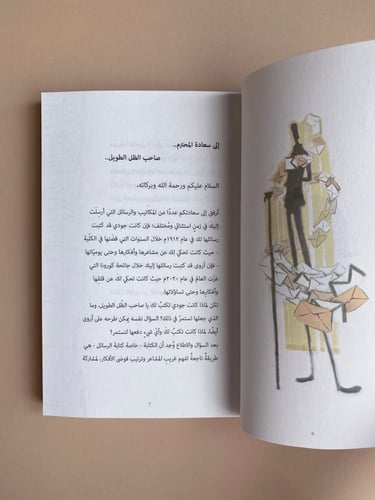 إلى سعادة المحترم..
صاحب الظل الطويل..
السلام عليكم ورحمة الله وبركاته.
أرفق إلى سعادتكم عددًا من المكاتيب والرسائل التي أُرسِلت
إليك في زمنٍ استثنائي ومُختلف؛ فإن كانت جودي قد كتبت
رسائلها لك في عام ١٩١٢م خلال السنوات التي قضتها في الكلّية
حيث كانت تحكي لك عن مشاعرها وأفكارها وحتى يوميّاتها
- فإن أروى قد كتبت رسائلها إليك خلال جائحة كورونا التي
غزت العالم في عام ٢٠٢٠م حيث كانت تحكي لك عن قلقها
وأفكارها وحتى تساؤلاتها.
لكن لماذا كانت جودي تكتبُ لك يا صاحب الظّل الطويل، وما
الذي جعلها تستمرُ في ذلك؟ السؤال نفسه يمكن طرحه على أروى
أيضًا. لماذا كانت تكتبُ لك وأيُّ شيءٍ دفعها لتستمر؟
بعد السؤال والاطلاع وُجد أن الكتابة - خاصة كتابة الرسائل - هي
طريقةٌ ناجعةٌ لفهم غريب المشاعر وترتيب فوضى الأفكار، لمشاركة